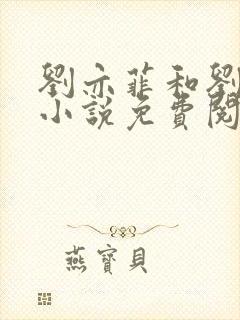 劉亦菲和劉
小說免費閱
燕寶貝